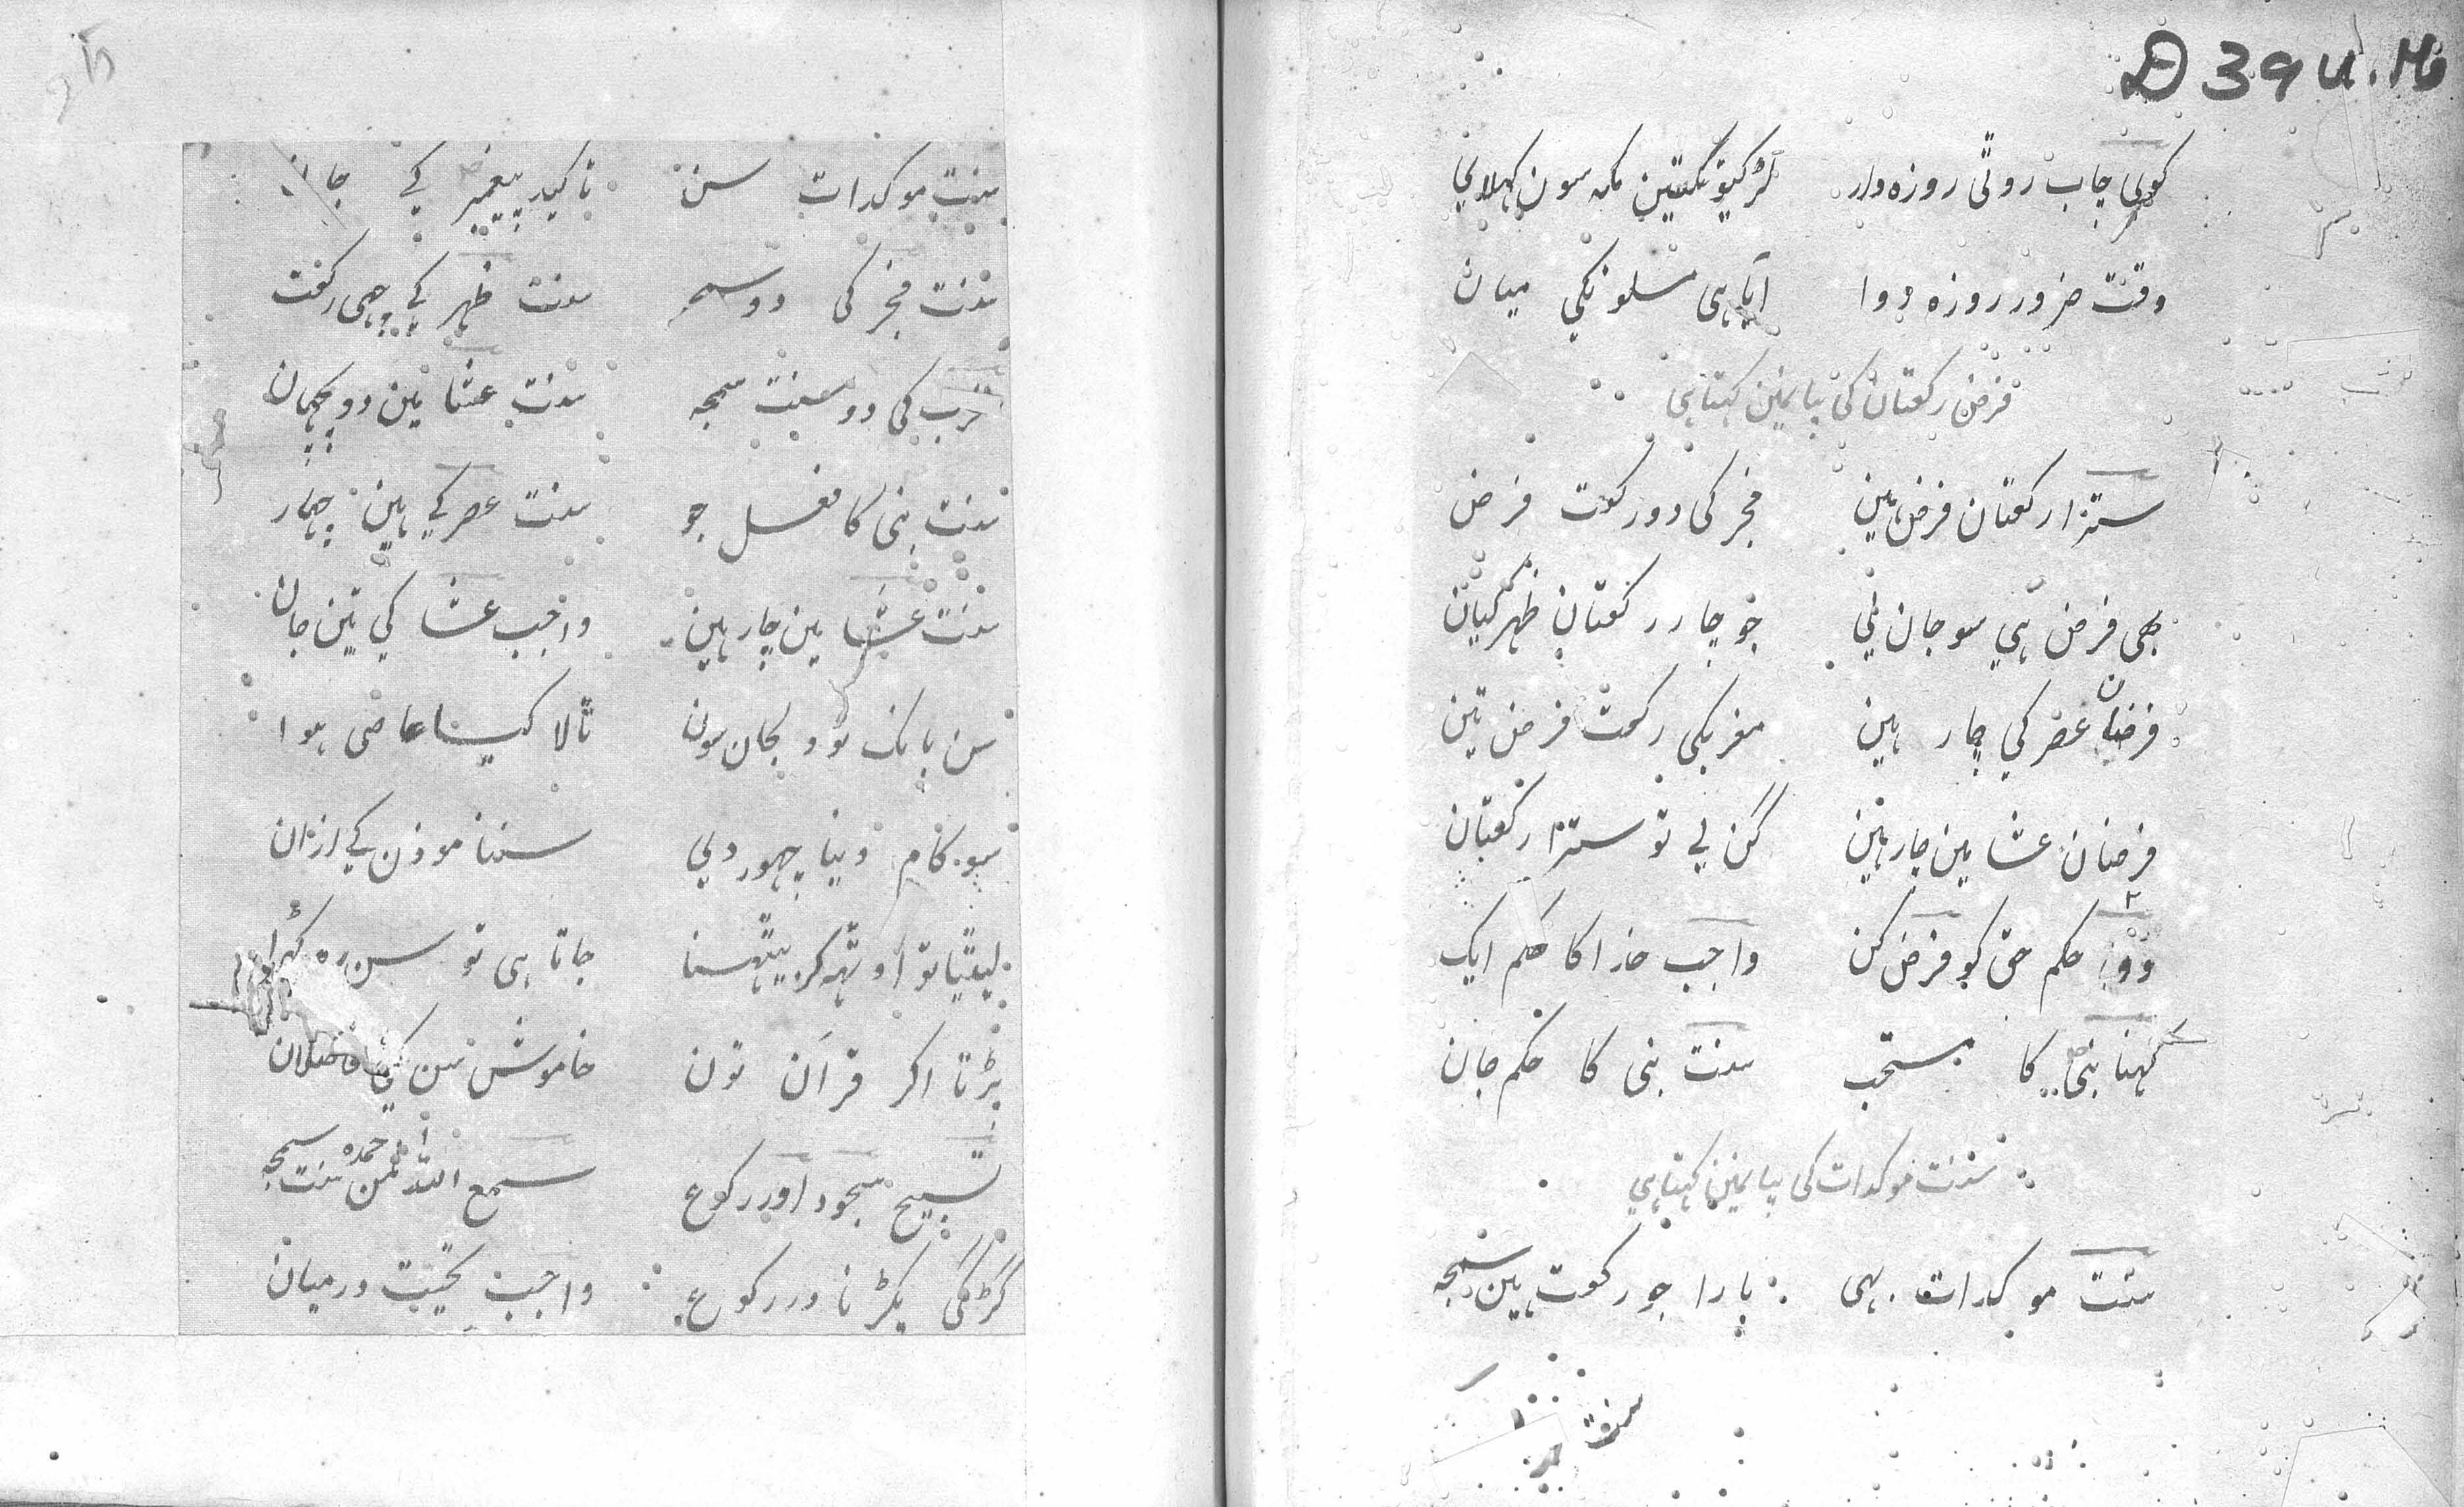 D 39 U. Ms
کوی چاب روتی روزہ دار لڑکیو نکتین مکہ سون کہلانی
وقت ضرور روزہ دوا ایاہی مسلونکی میان
فرض رکعتان کی بیانمین کہتاہی
سترا رکعتان فرض ہین فجر کی دو رکعت فرض
بھی فرض ہی سو جان لی جو چار رکعتان ظہر کیان
فرضان عصر کی چار ہین مغربکی رکعت فرض تین
فرضان عشا مین چار ہین گن لی تو سترا رکعتان
دو حکم حق کو فرض کن واجب خدا کا حکم ایک
کہنا نبی کا مستحب سنت نبی کا حکم جان
سنت موکدات کی بیانمین کہتاہی
سنت موکدات ہی بارا جو رکعت ہین سمجہ
سنت
25
سنت موکدات سن تاکید پیغمبر کی جان
سنت فجر کی دو سمجہ سنت ظہر کی چھی رکعت
مغرب کی دو سنت سمجہ سنت عشا مین دو پچھان
سنت نبی کا فعل جو سنت عصر کی ہین چہار
سنت عشا مین چار ہین واجب عشا کی تین جان
سن بانک تو دو کان سون تالا کیسا عاصی ہوا
سو کام دنیا چھور دی سننا موذن کی اذان
لیٹیا تو اوٹھ کر بیٹھنا جاتا ہی تو سن رہ کھڑا
پڑتا اگر قرآن تون خاموش سن کی فاضلان
تسبیح سجود اور رکوع سمع اللہ لمن حمدہ سنت سمجہ
گڑگی پکڑنا در رکوع واجب تحیت درمیان